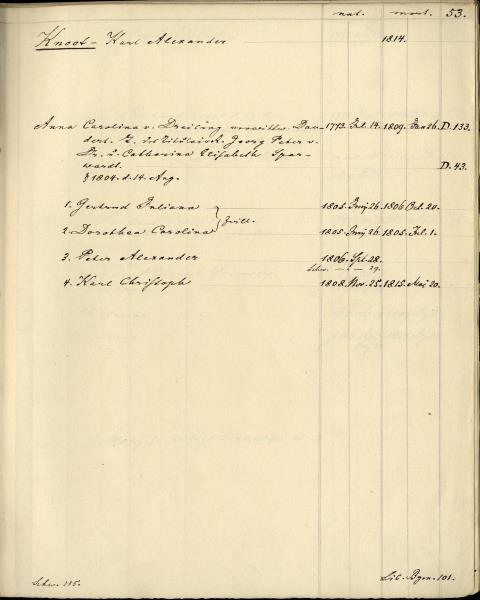 nat. mort. 53.
Knoot - Karl Alexander 1814.
Anna Carolina v. Dreiling verwittw. Dau- 1773. Jul. 14. 1809. Jan 26. D. 133.
dert. T. Georg Peter v.
Dr. u. Catharina Elisabeth Spar-
wardt. D. 43.
1804. d. 14. Aug.
1. Gertrud Juliana 1805. Junij 26. 1806. Oct. 20.
Zwill.
2. Dorothea Carolina 1805. Junij 26. 1805. Jul. 1.
3. Peter Alexander 1806. Spt. 28.
Schw. - " - 29.
4. Karl Christoph 1808. Nov. 25. 1815. Mai 20.
Schw. 115. Lib. Bgm. 101.